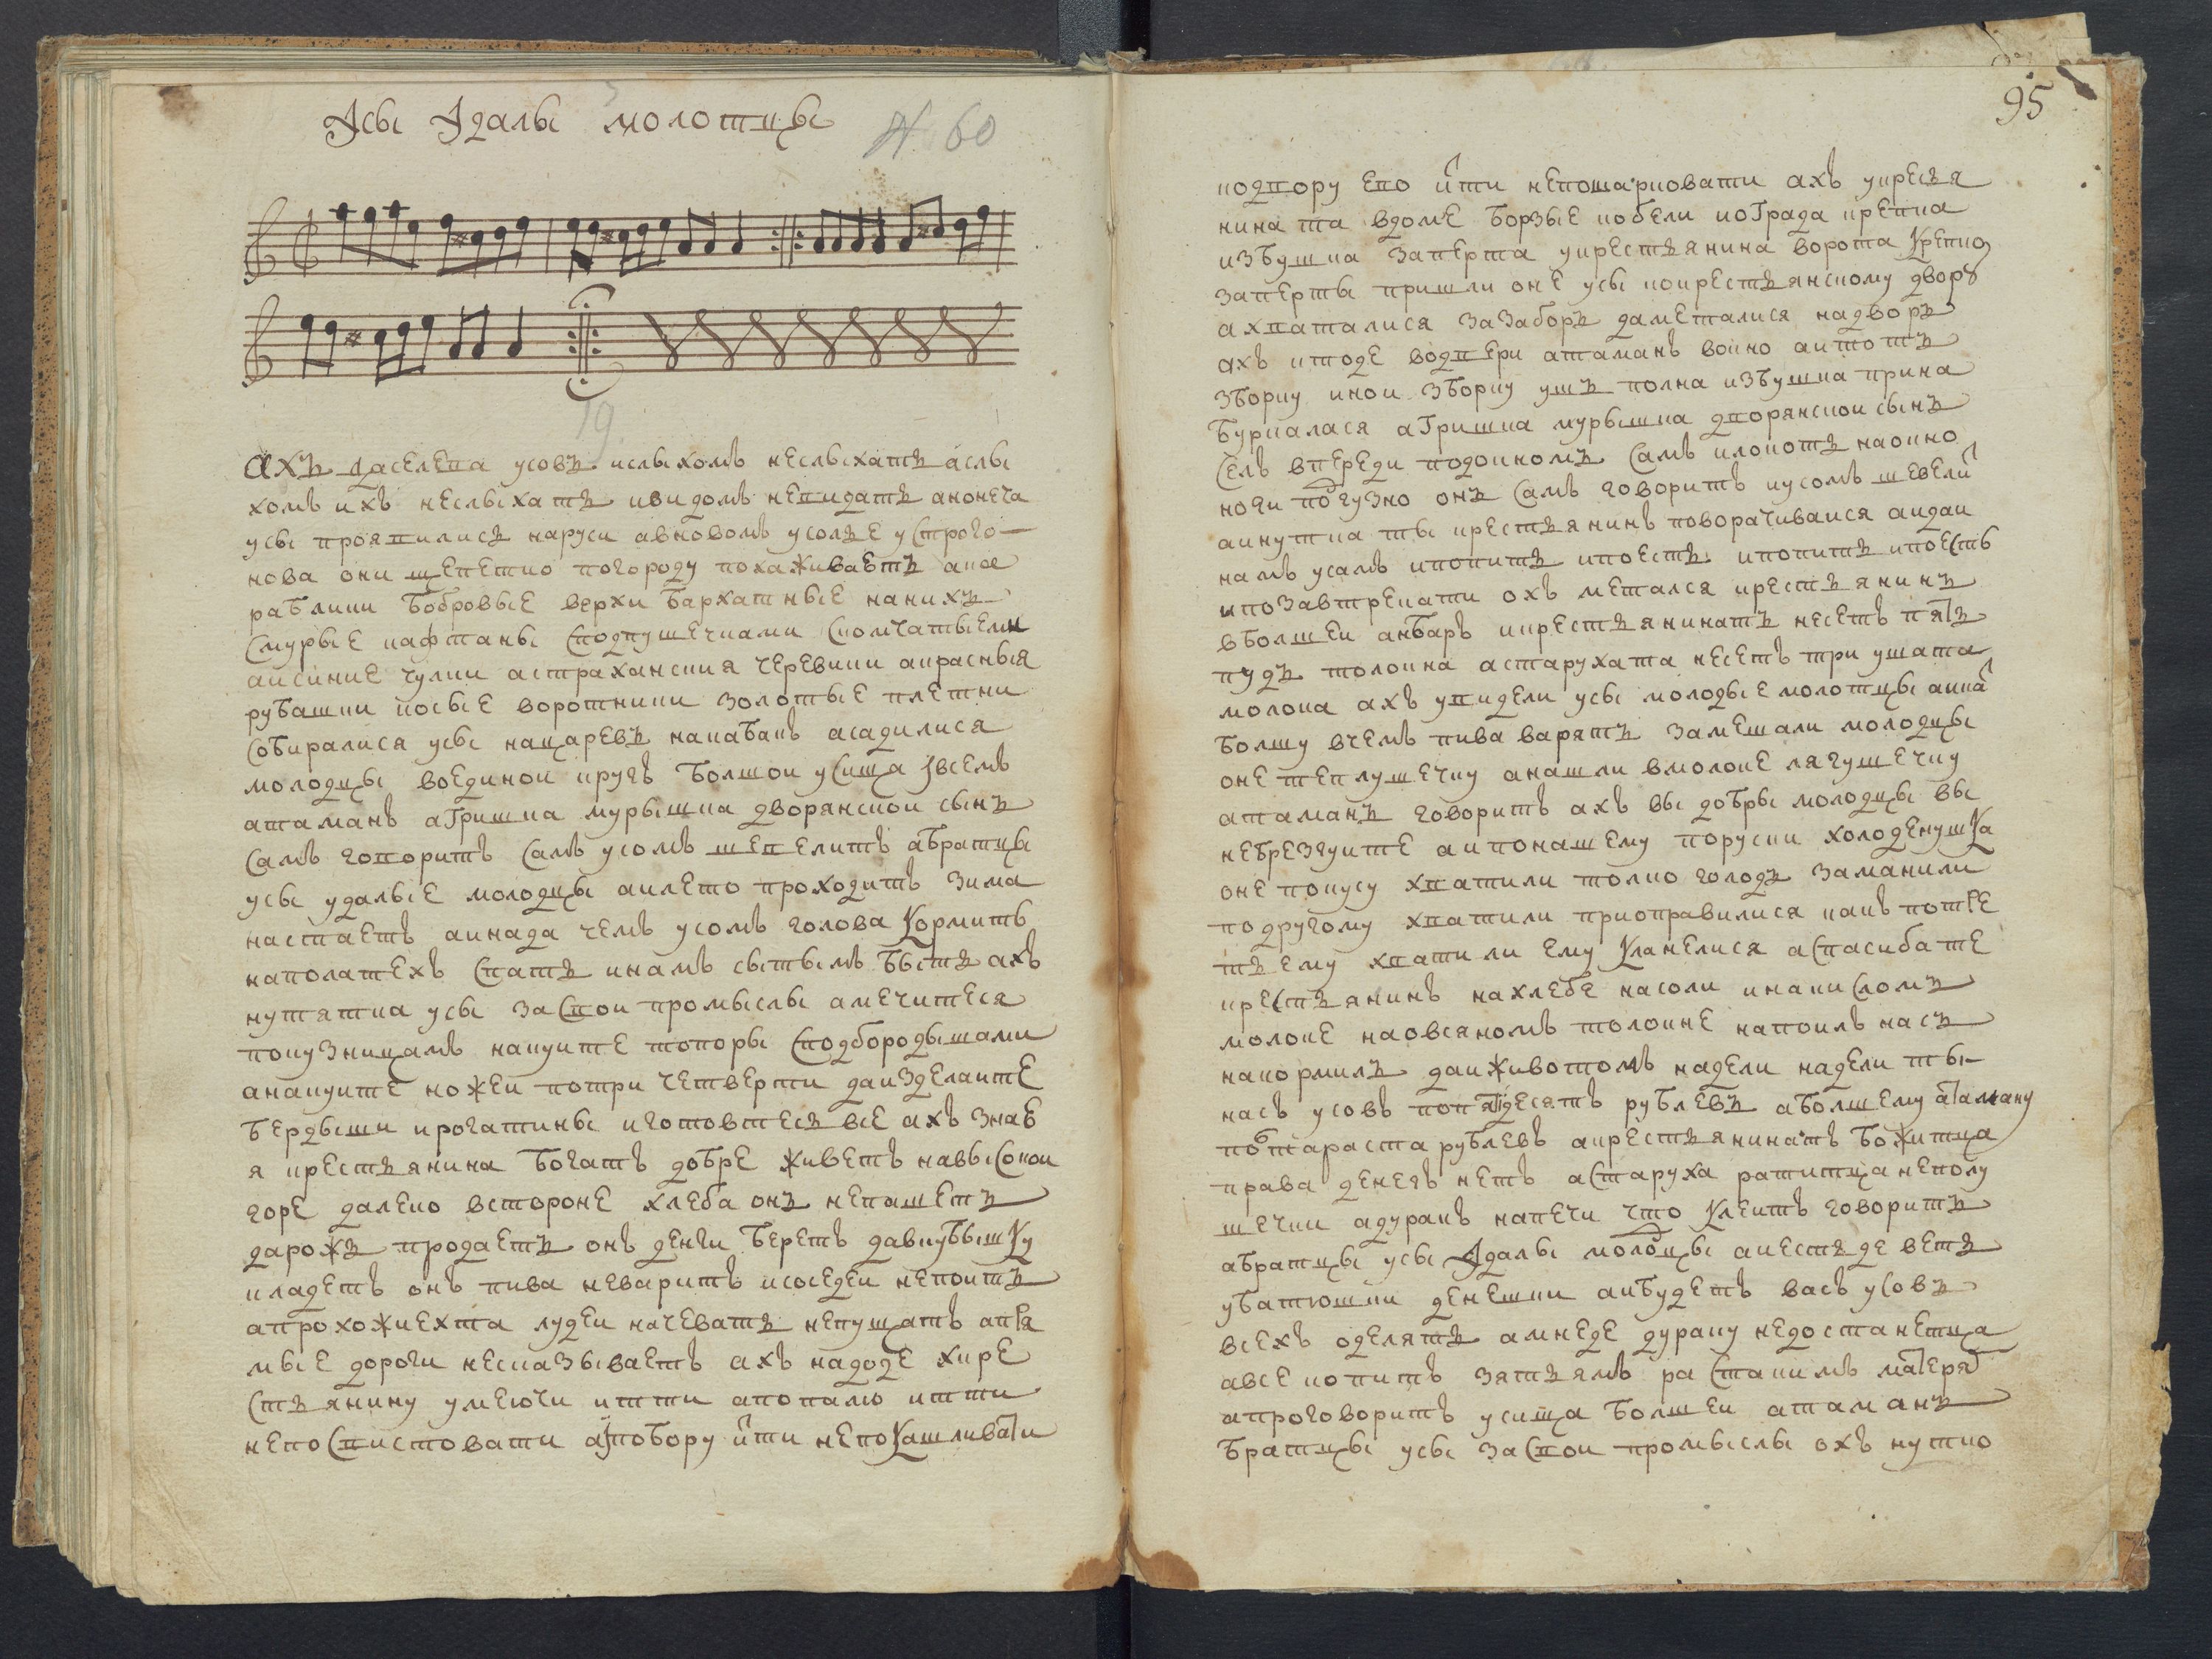 Усы Удалы молотцы
№ 60
19.
ахъ доселева усовъ ислыхомъ неслыхать аслы
хомъ ихъ неслыхать ивидомъ невидать анонеча
усы проявились наруси авновомъ усолье устрого
нова они щепетко погороду похаживаетъ акол
раблики бобровые верхи бархатные нанихъ
смурые кафтаны сподпушечками скомчатыеми
аисиние чулки астраханския черевики акрасныя
рубашки косые воротники золотые плетни
собиралися усы нацаревъ накабакъ асадилися
молодцы воединой кругъ болшой усища ѕвсемъ
атаманъ агришка мурышка дворянской сынъ
самъ говоритъ самъ усомъ шевелитъ абратцы
усы удалые молодцы аилето проходитъ зима
настаетъ аинада чемъ усомъ голова кормить
наполатехъ спать инамъ сытымъ быть ахъ
нутятка усы засвои промыслы амечитеся
покузницамъ накуите топоры сподбородышами
анакуите ножеи потри четверти даизделаите
бердыши ирогатины иготовтесь все ахъ знае
я крестьянина богатъ добре живетъ навысокои
горе далеко встороне хлеба онъ непашетъ
дарожь продаетъ онъ денги беретъ давкубышку
кладетъ онъ пива неваритъ исоседеи непоитъ
апрохожиехта лудеи начевать непущатъ апря
мые дороги несказываетъ ахъ надоде ккре
стьянину умеючи итти апополю итти
непосвистовати а побору итти непокашливати
95
подвору ево итти непошарковати ахъ укресья
нина та вдоме борзые кобели иограда крепка
избушка заперта укрестьянина ворота крепко
заперты пришли оне усы кокрестьянскому двору
ахваталися зазаборъ даметалися надворъ
ахъ ктоде водвери атаманъ вокно аитотъ
зборку инои зборку ушъ полна избушка прина
буркалася агришка мурышка дворянскои сынъ
селъ впереди подокномъ самъ илокотъ наокно
ноги подгузно онъ самъ говоритъ иусомъ шевели
аинутка ты крестьянинъ поворачиваися аидаи
намъ усамъ ипопить ипоесть ипопить ипоесть
ипозавтрекати охъ метался крестьянинъ
вболшеи анбаръ икрестьянинатъ несетъ пять
пудъ толокна астарухата несетъ три ушата
молока ахъ увидели усы молодые молотцы аика
болшу вчемъ пива варятъ замешали молодцы
оне теплушечку анашли вмолоке лягушечку
атаманъ говоритъ ахъ вы добры молодцы вы
небрезгуите аипонашему поруски холоденушка
оне покусу хватили толко голодъ заманили
подругому хватили приоправилися какъ потре
тьему хватили ему кланелися аспасибате
крестьянинъ нахлебе насоли инакисломъ
молоке наовсяномъ толокне напоилъ насъ
накормилъ даиживотомъ надели надели ты
насъ усовъ попятдесятъ рублевъ аболшему атаману
полтараста рублевъ акрестьянинатъ божитца
права денегъ нетъ астаруха ратитца неполу
шечки адуракъ напечи что клеитъ говоритъ
абратцы усы Удалы молодцы аиестьде ветъ
убатюшки денешки аибудетъ васъ усовъ
всехъ оделять амнеде дураку недостанетца
авсе копитъ зятьямъ растакимъ матеря
апроговоритъ усища болшеи атаманъ
братцы усы засвои промыслы охъ нутко